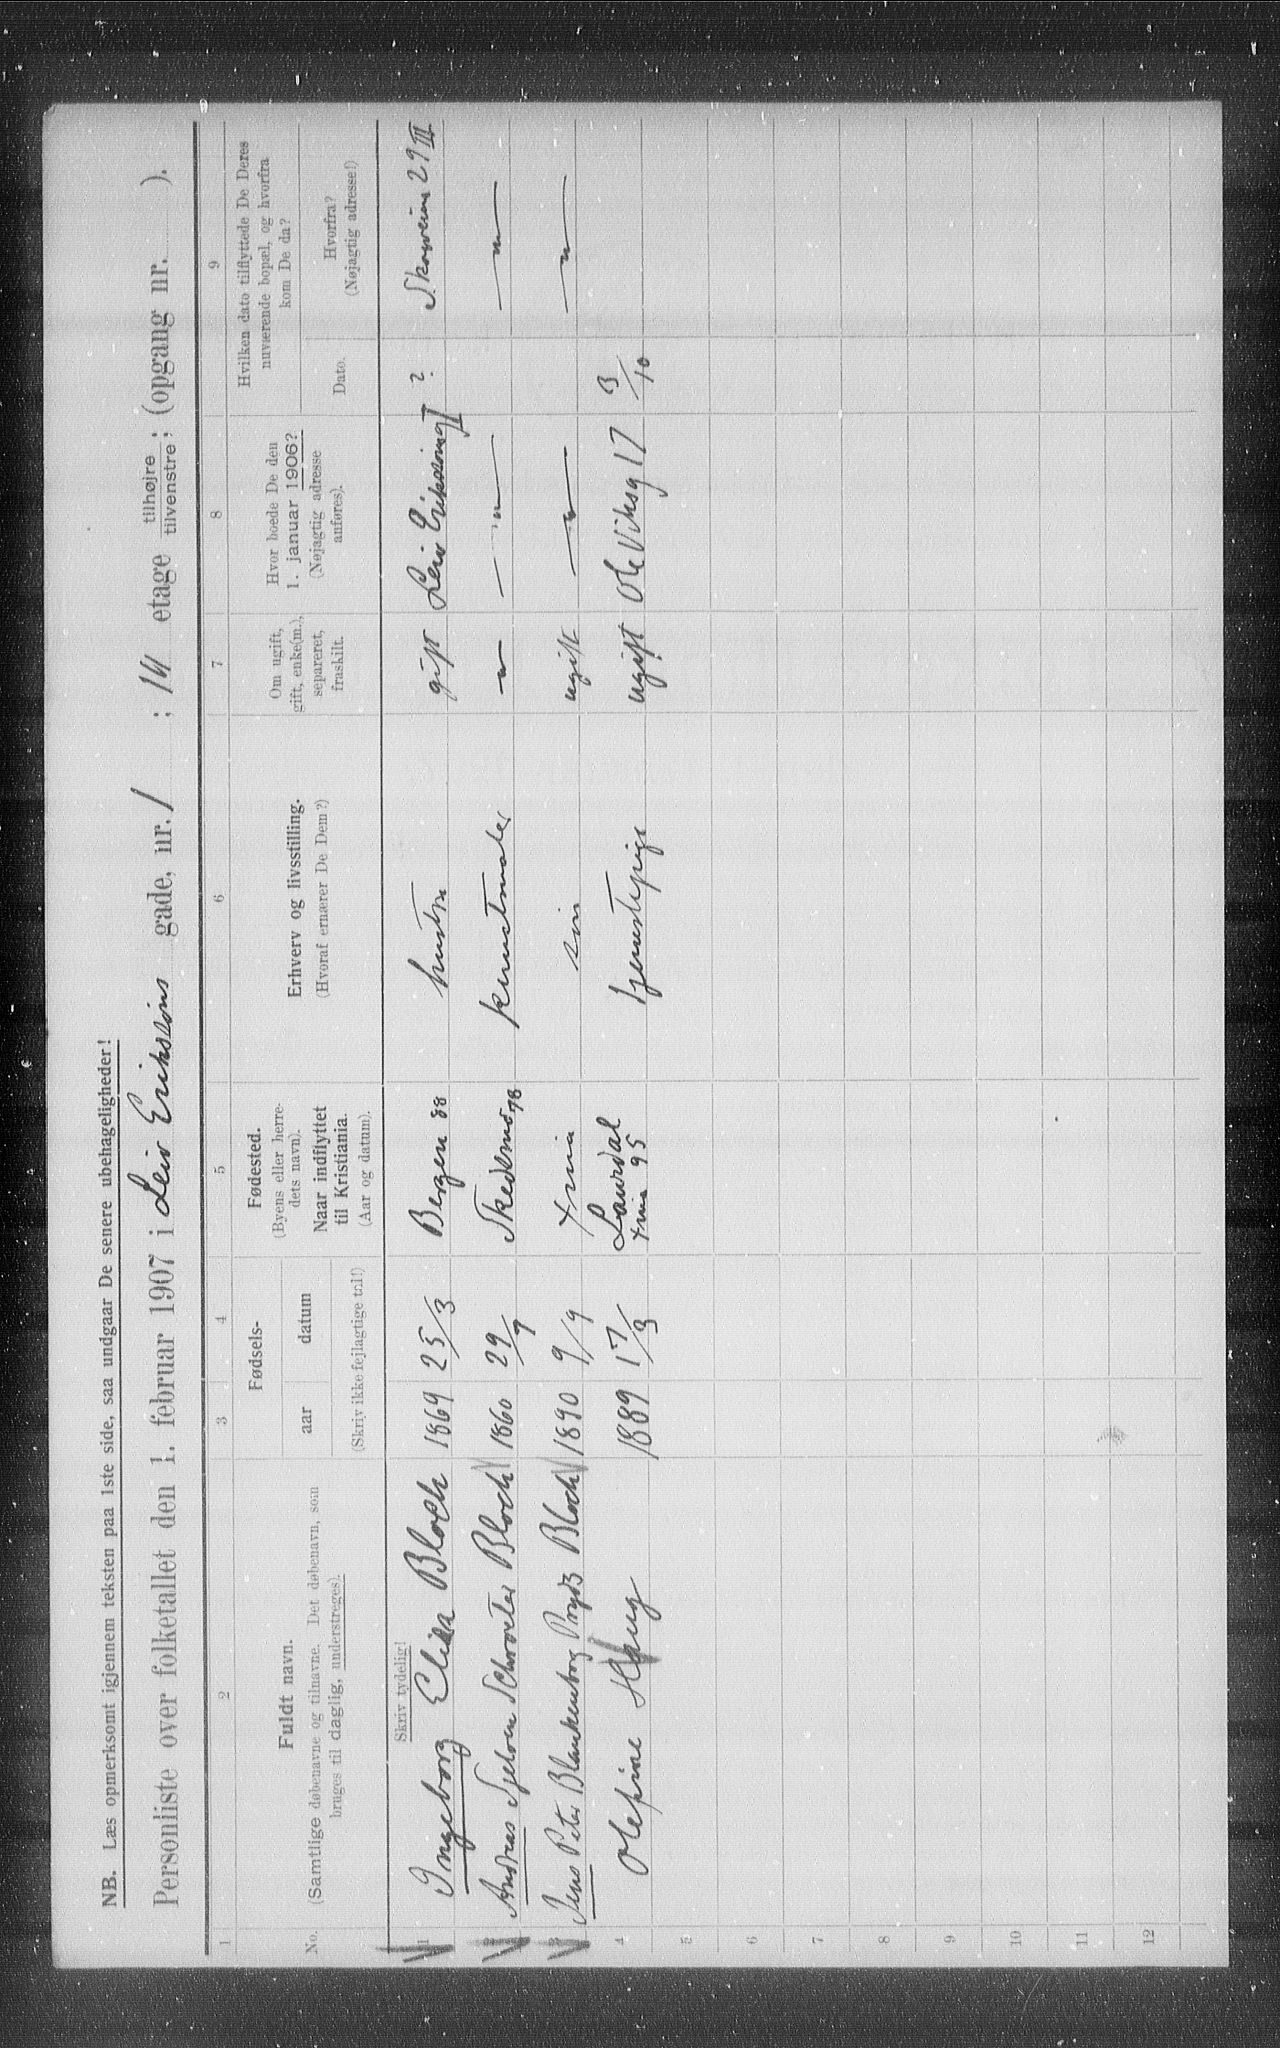 NB. Læs opmerksomt igjennem teksten paa 1ste side, saa undgaar De senere ubehageligheder!
Personliste over folketallet den 1. februar 1907 i Leiv Erikssöns gade, nr. 1 ; etage tilhøjre tilvenstre; (opgang nr. ).
1 2 3 4 5 6 7 8 9
No.
Fuldt navn.
(Samtlige døbenavne og tilnavne. Det døbenavn, som
bruges til daglig, understreges).
Fødsels-
aar datum
(Skriv ikke fejlagtige tal!)
Fødested.
(Byens eller herre-
dets navn).
Naar indflyttet
til Kristiania.
(Aar og datum).
Erhverv og livsstilling.
(Hvoraf ernærer De Dem?)
Om ugift,
gift, enke(m.),
separeret,
fraskilt.
Hvor boede De den
1. januar 1906?
(Nøjagtig adresse
anføres).
Hvilken dato tilflyttede De Deres
nuværende bopæl, og hvorfra
kom De da?
Dato.
Hvorfra?
(Nøjagtig adresse!)
Skriv tydelig!
1 Ingeborg Elisa Bloch 1869 25/3 Bergen 88 hustru gift ? 29 III
2 Andreas Schroeter Bloch 1860 29/7 Skedsmo 78 kunstmaler — " — — " — — " —
3 Jens Peter Blankenborg Prydz Bloch 1890 9/9 Xnia sön ugift — " — — " —
4 Olefine Haug 1889 17/3 Laurdal tjenestepige ugift Ole Viksg 17 3/10
Xnia 95
5
6
7
8
9
10
11
12